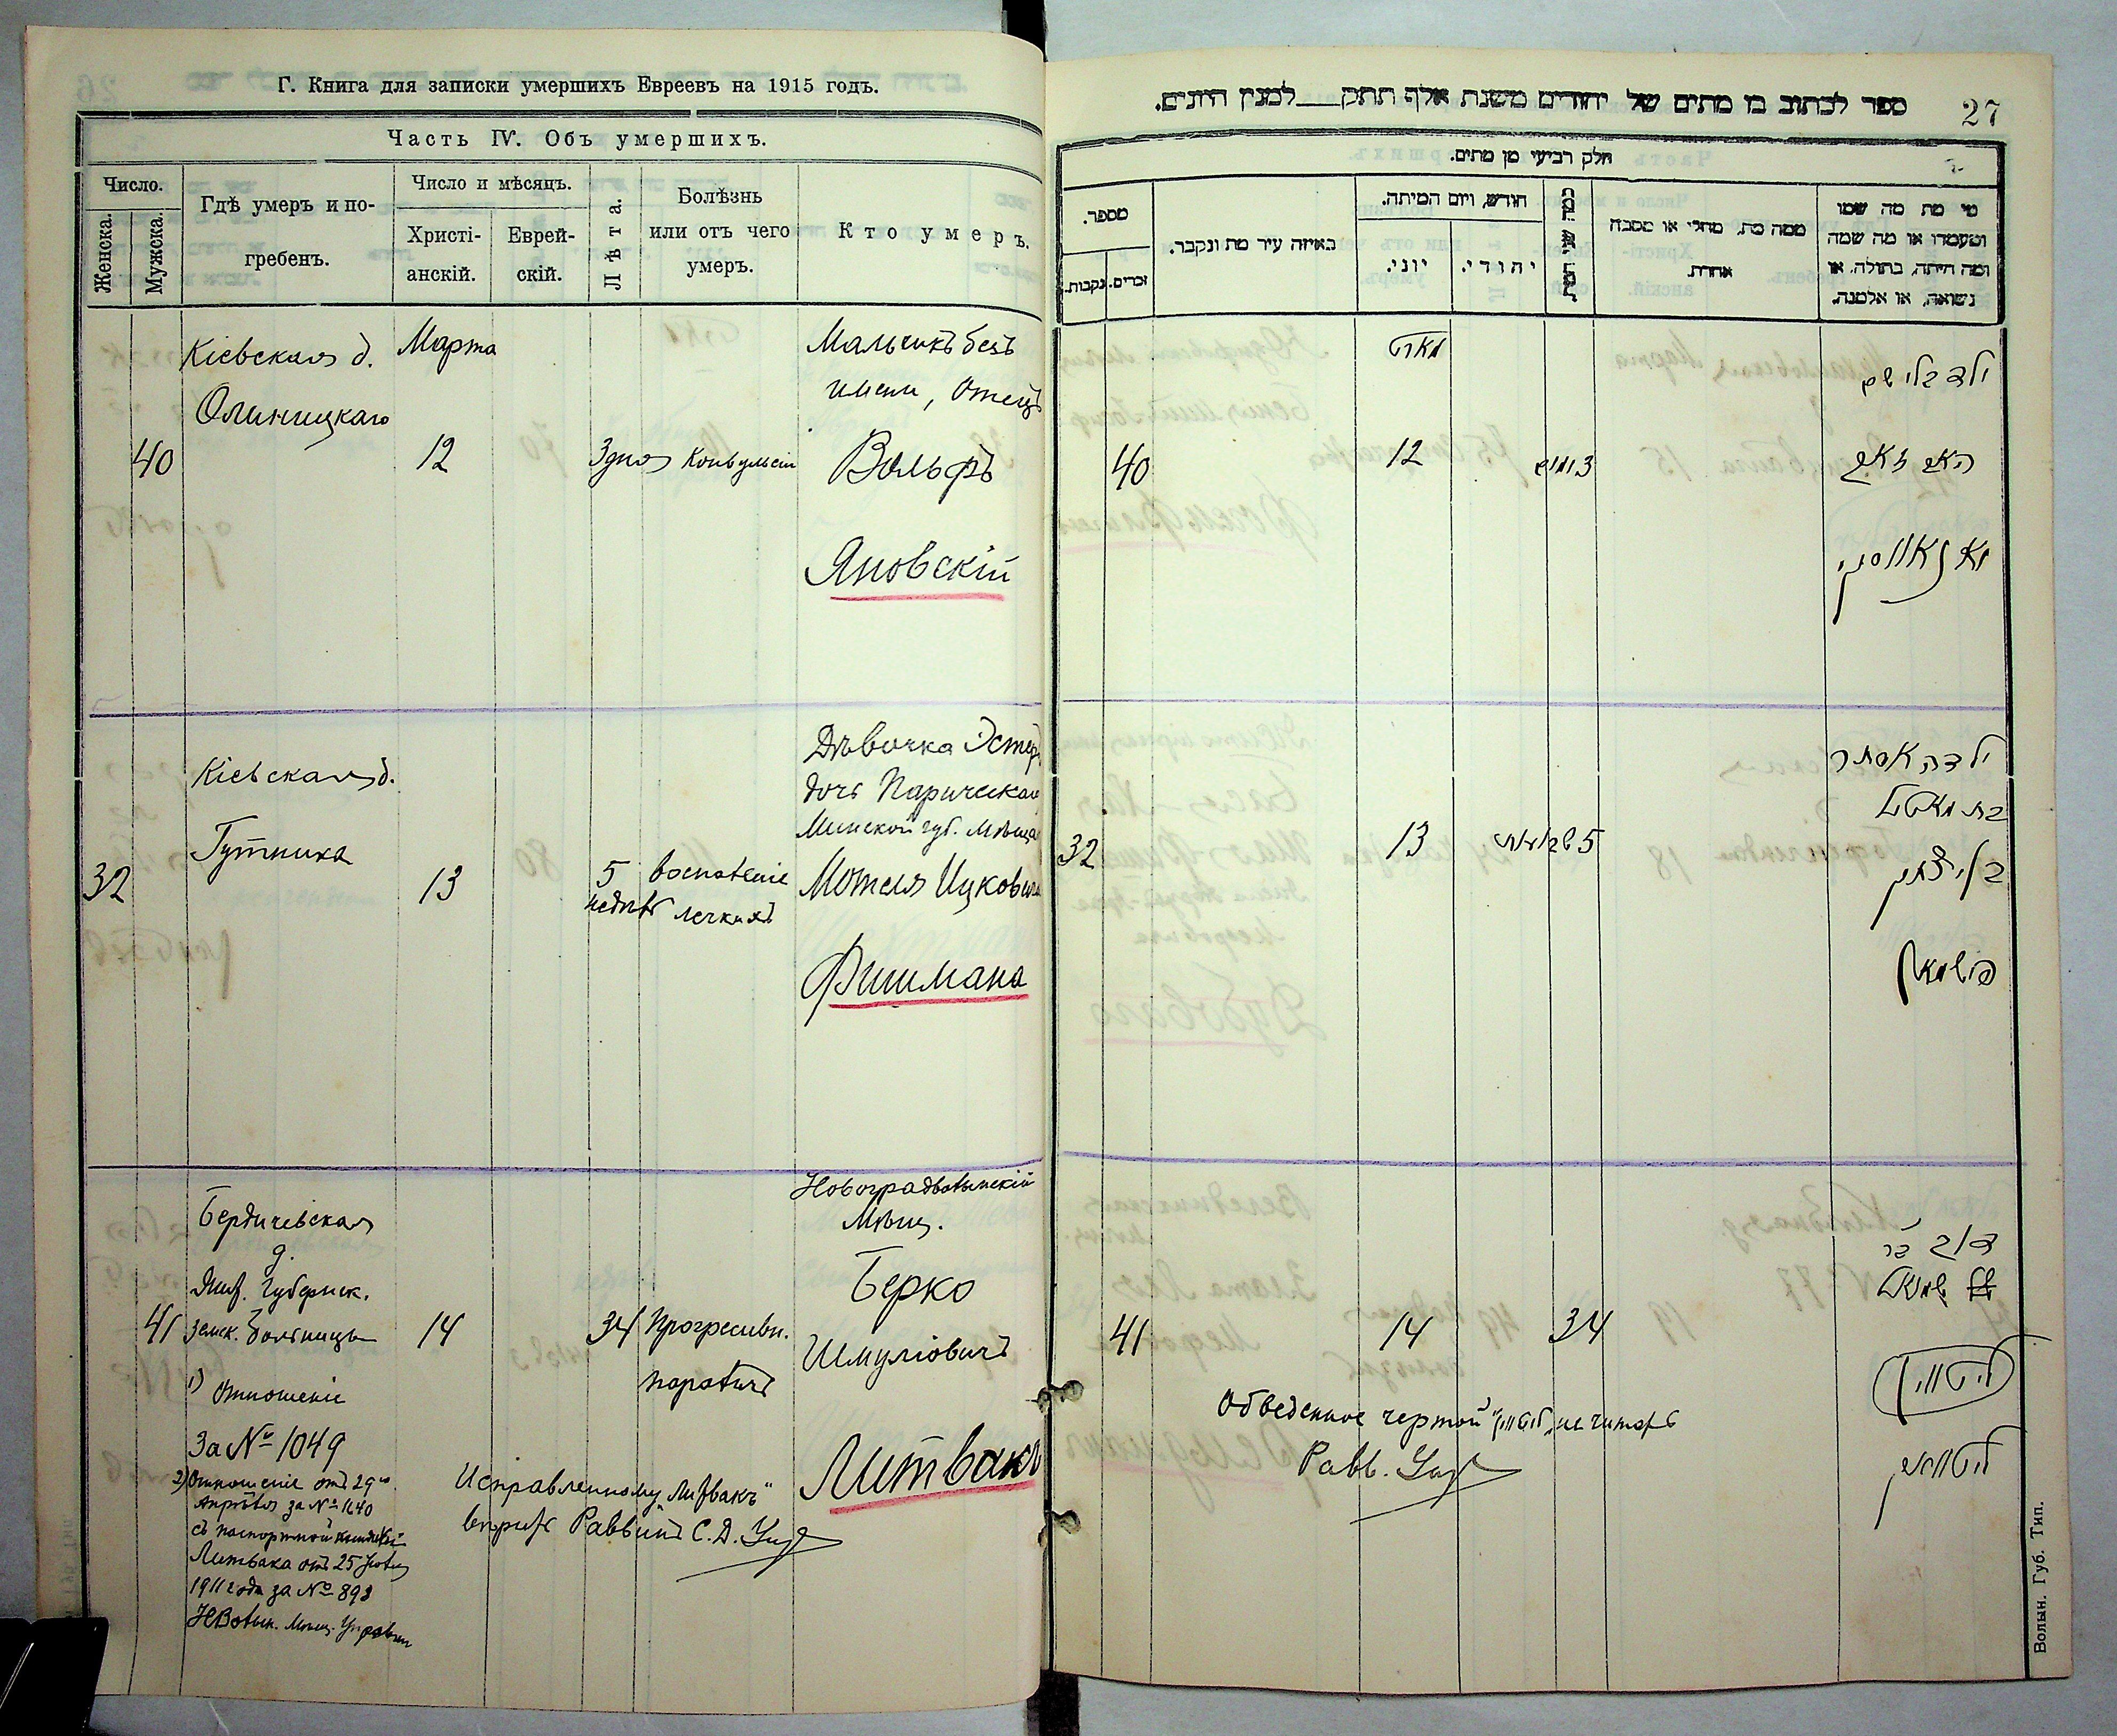 Г. Книга для записки умершихъ Евреевъ на 1915 годъ.
Часть IV. Объ умершихъ.
Число.
Женска.
Мужска.
Гдѣ умеръ и по-
гребенъ.
Число и мѣсяцъ.
Христі-
анскій.
Еврей-
скій.
Лѣта.
Болѣзнь
или отъ чего
умеръ.
Кто умеръ.
40
Кіевская д.
Олиницкаго
Марта
12
3 дня
Конвульсіи
Мальчикъ безъ
имени, Отецъ
Вольфъ
Яновскій
32
Кіевская д.
Гутника
13
5
недѣль
Воспаленіе
легкихъ
Дѣвочка Эстеръ
дочь Паричскаго
Минской губ. Мѣщан
Мотеля Ицковича
Фишмана
41
Бердичевская
д.
Жит. Губернск.
земск. больницы
1) Отношеніе
За № 1049
2) Отношеніе отъ 29го
Апрѣля за № 1640
съ паспортной книжкой
Литвака отъ 25 Іюля
1911 года за № 893
НВолын. Мѣщ. Управы
14
34
Прогресивн.
параличъ
Новоградволынскій
Мѣщ.
Берко
Шмуліовичъ
Литвакъ
Исправленному „Литвакъ"
вѣрить Раввинъ С. Д.
27
ספר לכתוב בו מתים של יהודים משנת אלף תתק__למנין היונים.
חלק רביעי מן מתים.
מספר.
נקבות.
זכרים.
באיזה עיר מת ונקבר.
חודש, ויום המיתה.
יוני.
יהודי.
כמה שני המת
ממה מת, מחלי או מסבה
אחרת.
מי מת מה שמו
ומעמדו או מה שמה
ומה היתה, בתולה, או
נשואה, או אלמנה.
40
מארט
12
3 ימים
ילד בלי שם
האב זאב
יאנאווסקי
32
13
5 שבועות
ילדה אסתר
בת מאטל
בן יצחק
פישמאן
41
14
34
דוב בר
שמואל
ליטווין
ליטוואק
Обведенное чертой „ליטווין" не читать
Равв.
Волын. Губ. Тип.